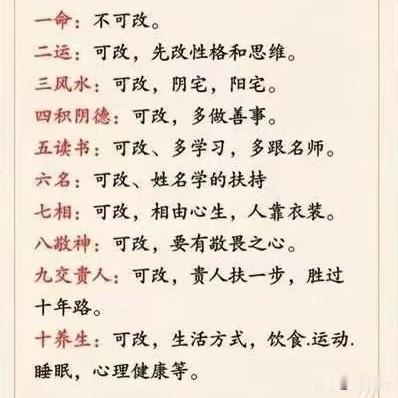 一命：不可改。
二运：可改，先改性格和思维。
三风水：可改，阴宅，阳宅。
四积阴德：可改，多做善事。
五读书：可改、多学习，多跟名师。
六名：可改、姓名学的扶持
七相：可改，相由心生，人靠衣装。
八敬神：可改，要有敬畏之心。
九交貴人：可改，貴人扶一步，胜过
十年路。
十养生：可改，生活方式，饮食.运动.
睡眠，心理健康等。